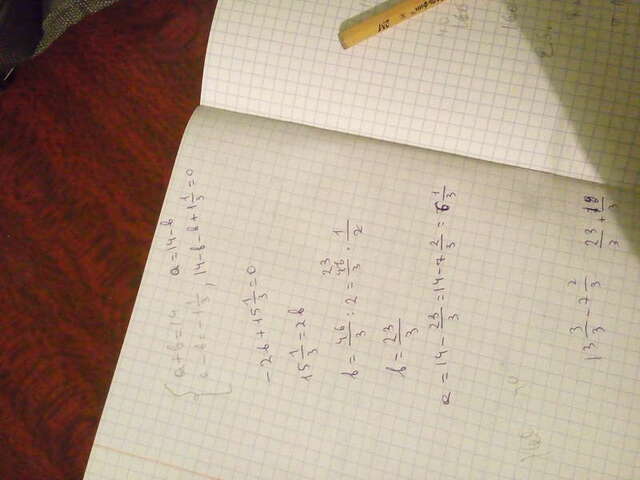 { a+b=14 a=14-b
a-b=-1 1/3 , 14-b-b+1 1/3=0
-2b+15 1/3=0
15 1/3=2b
b=46/3:2=46/3·1/2
23
b=23/3
a=14-23/3=14-7 2/3=6 1/3
13 3/3-7 2/3 23/3+19/3